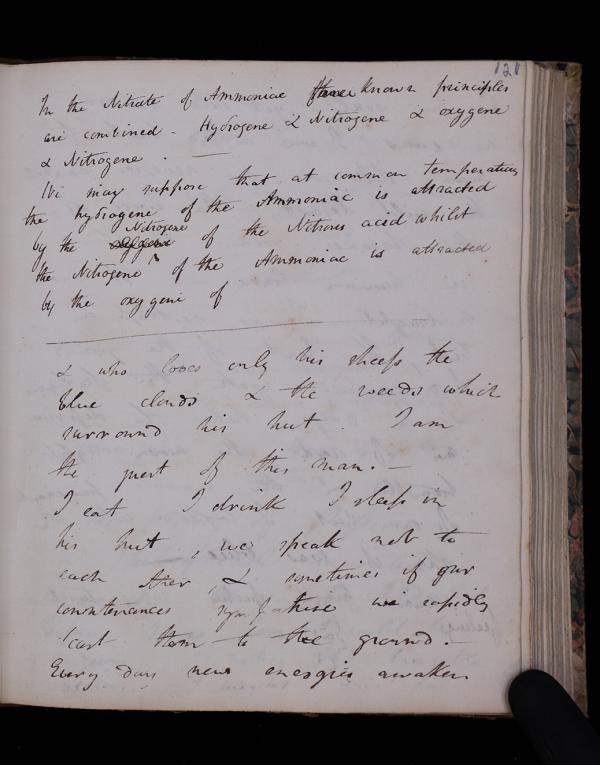 121
In the Nitrate of Ammoniac three known principles
are combined - Hydrogene & Nitrogene & oxygene
& Nitrogene . —
We may suppose that at common temperatures
the hydrogene of the Ammoniac is attracted
Nitrogene
by the oxygene of the Nitrous acid whilst
the Nitrogene of the Ammoniac is attracted
by the oxygene of
& who loves only his sheep the
blue clouds & the weeds which
surround his hut . I am
the guest of this man. —
I eat I drink I sleep in
his hut , we speak not to
each other , & sometimes if our
countenances sympathise we rapidly
cast them to the ground. —
Every day new energies awaken